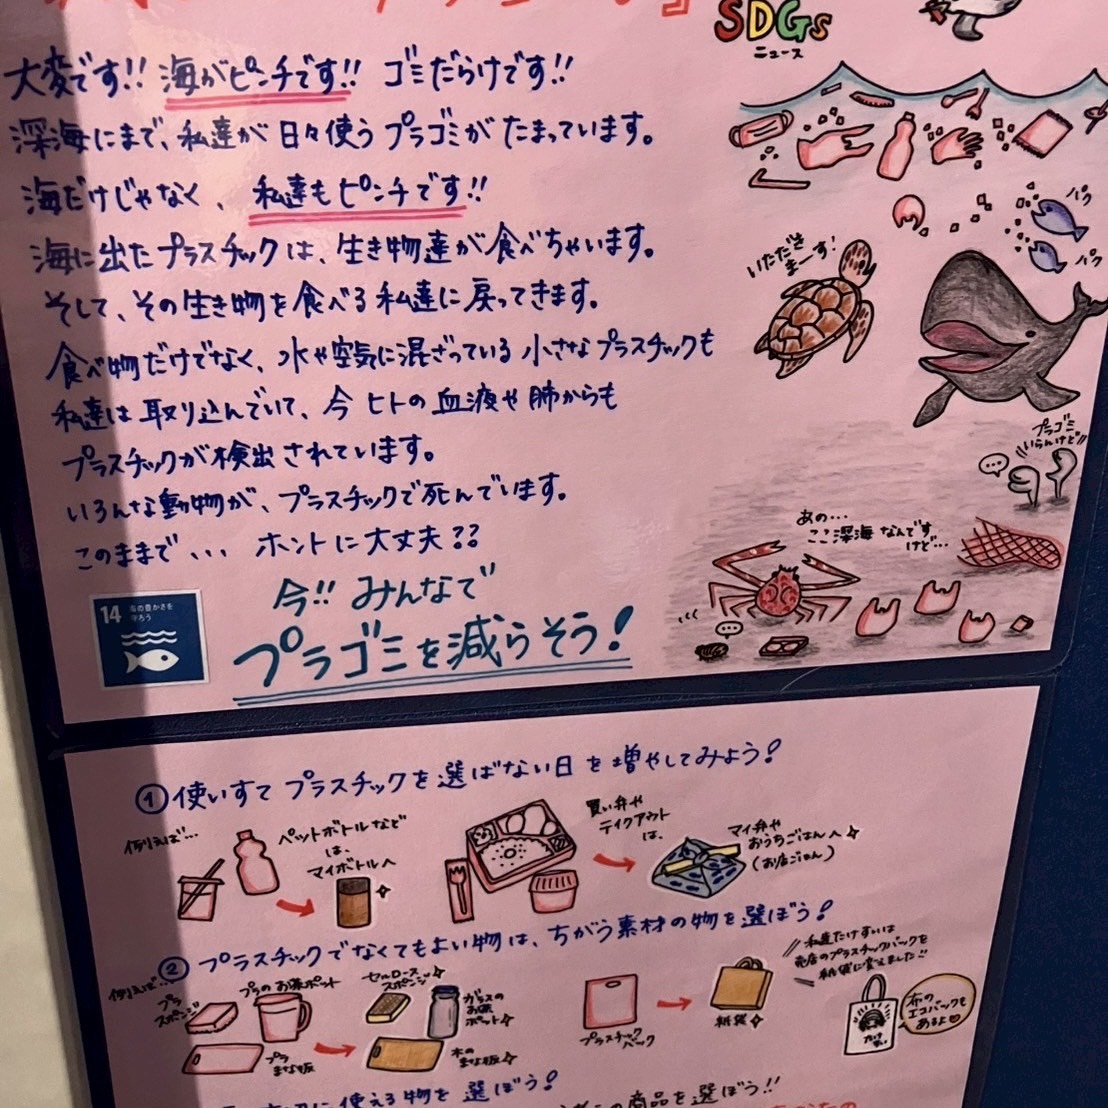 SDGs
ニュース
大変です!! 海がピンチです!! ゴミだらけです!!
深海にまで、私達が日々使うプラゴミがたまっています。
海だけじゃなく、私達もピンチです!!
海に出たプラスチックは、生き物達が食べちゃいます。
そして、その生き物を食べる私達に戻ってきます。
食べ物だけでなく、水や空気に混ざっている小さなプラスチックも
私達は取り込んでいて、今ヒトの血液や肺からも
プラスチックが検出されています。
いろんな動物が、プラスチックで死んでいます。
このままで... ホントに大丈夫??
今!! みんなで
プラゴミを減らそう!
14 海の豊かさを
守ろう
パク
パク
いただき
まーす!
プラゴミ
いらんけど!!
あの...
ここ深海なんです
けど...
①使いすて プラスチックを選ばない日を増やしてみよう!
例えば...
ペットボトルなど
は、
マイボトルへ
買い弁や
テイクアウト
は、
マイ弁や
おうちごはんへ
(お店ごはん)
②プラスチックでなくてもよい物は、ちがう素材の物を選ぼう!
例えば...
プラ
スポンジ
プラのお茶ポット
プラ
まな板
セルロース
スポンジ
ガラスの
お茶
ポット
木の
まな板
プラスチック
バック
紙袋
私達たけすいは
売店のプラスチックバックを
紙袋に変えました!!
布の
エコバックも
あるよ
使える物を選ぼう!
の商品を選ぼう!!